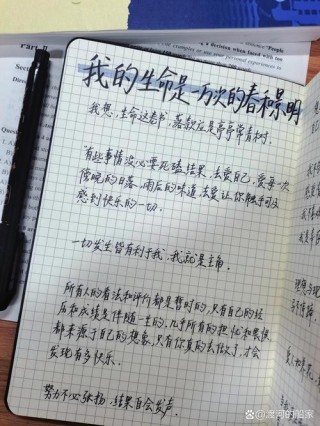 我的生命是一万次的春和景明
我想,生命这卷书,落款应是亭亭常青树.
"有些事情没必要死磕结果,去爱自己,爱每一次
傍晚的日落,雨后的味道,去爱让你触手可及
感到快乐的一切.
一切发生皆有利于我,我就是主角.
所有人的看法和评价都是暂时的,只有自己的经
历和成绩是伴随一生的,几乎所有的担忧和畏惧,
都来源于自己的想象,只有你真的去做了,才会
发现有多快乐.
努力不必张扬,结果自会发声.
@淮河的船家